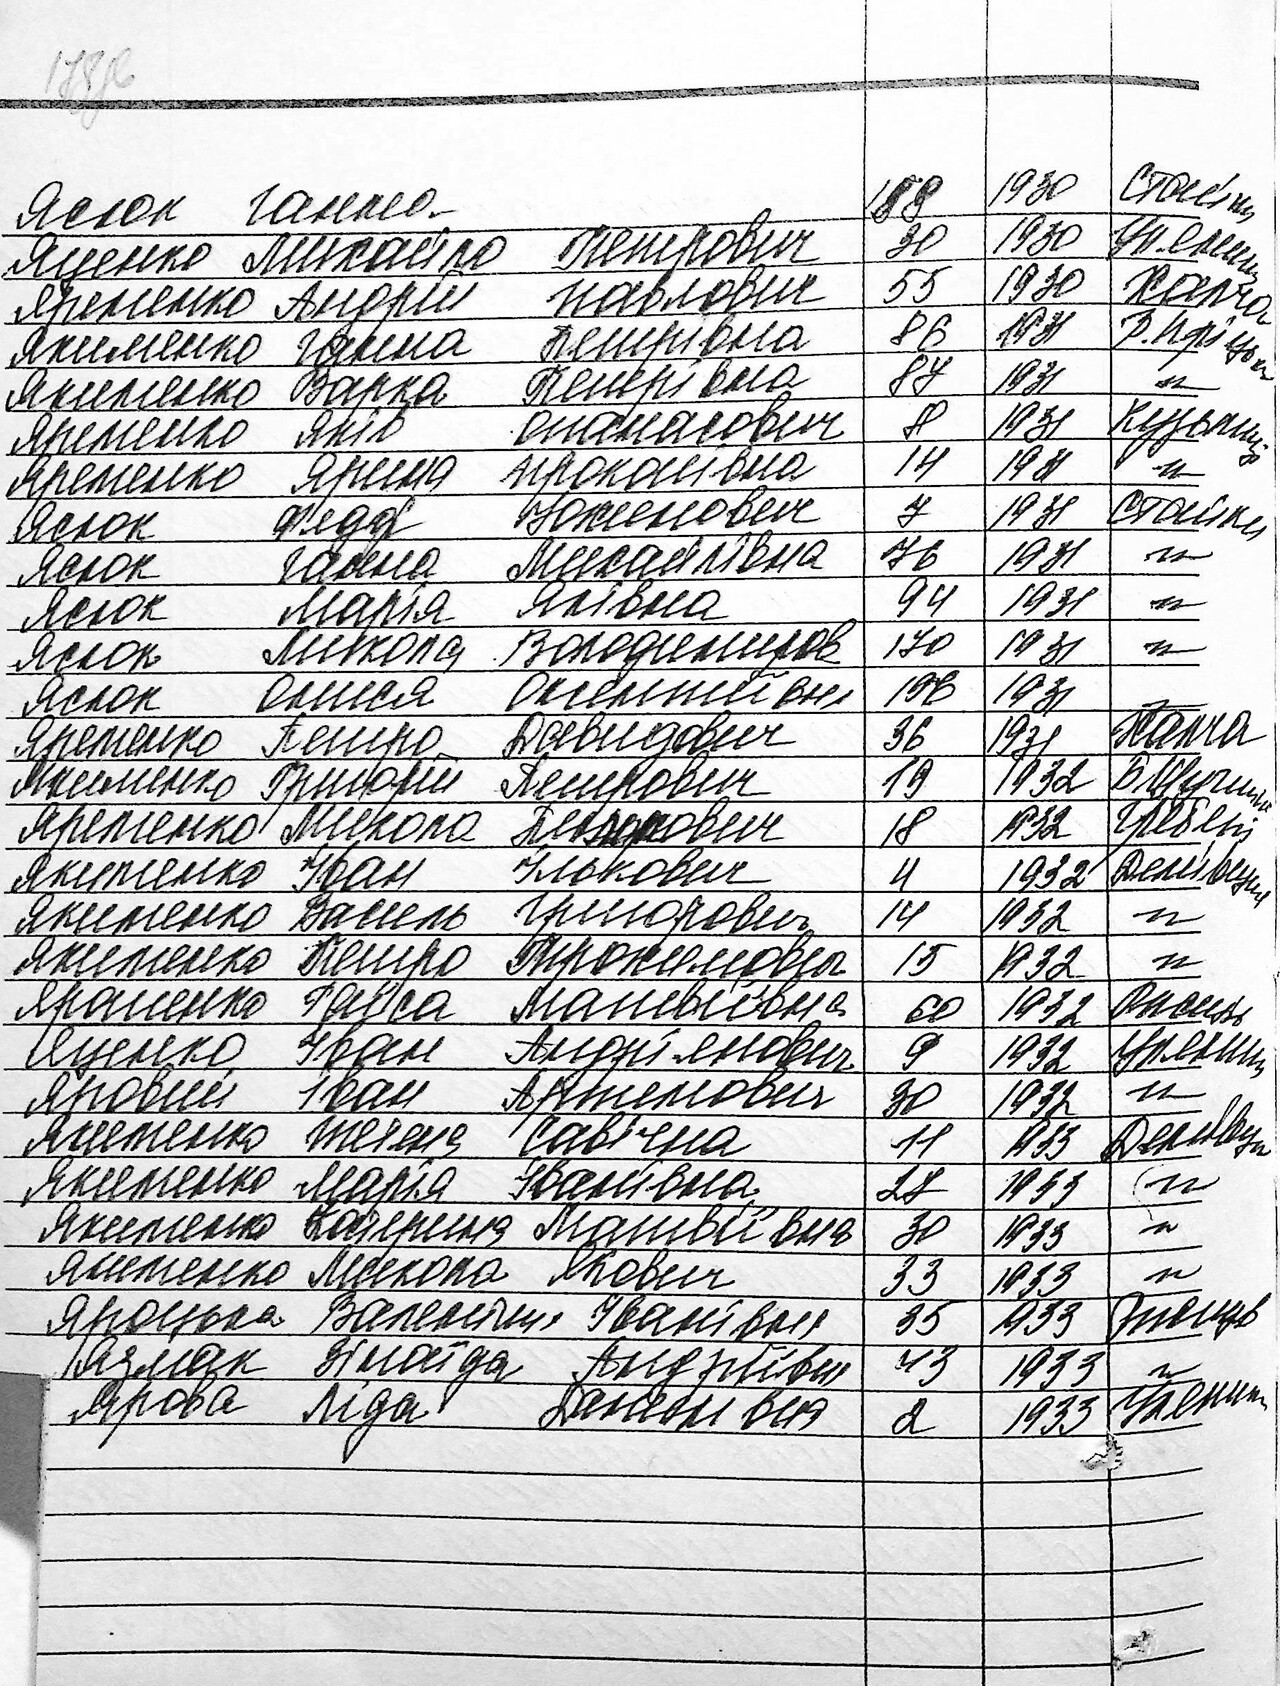 Яслюк Ганна 1930 Стайки
Яценко Михайло Петрович 30 1930 Уляники
Яременко Андрій Павлович 55 1930 Халча
Якименко Ганна Петрівна 86 1931
Якименко Варка Петрівна 87 1931 -"-
Яременко Яків Опанасович 8 1931 Кузьминці
Яременко Ярина Прокопівна 14 1931 -"-
Яслюк Федір 7 1931 Стайки
Яслюк Ганна Михайлівна 76 1931 -"-
Яслюк Марія Яківна 94 1931 -"-
Яслюк Микола Володимиров 170 1931 -"-
Яслюк Олися 1931
Яременко Петро Давидович 36 1931 Халча
Якименко Григорій Петрович 19 1932
Яременко Микола Петрович 18 1932 Гребені
Якименко Іван Ількович 4 1932
Якименко Василь Григорович 14 1932 -"-
Якименко Петро Трохимович 15 1932 -"-
Раїса Матвіївна 60 1932
Яценко Іван Андріянович 9 1932 Уляники
Яровий Іван Артемович 30 1932 -"-
Якименко Савічна 11 1933
Якименко Марія Іванівна 28 1933 -"-
Якименко Катерина Матвіївна 30 1933 -"-
Якименко Микола Якович 33 1933 -"-
Яроцька Валентина Іванівна 35 1933
Зінаїда Андріївна 43 1933 -"-
Ярова Ліда 2 1933 Уляники